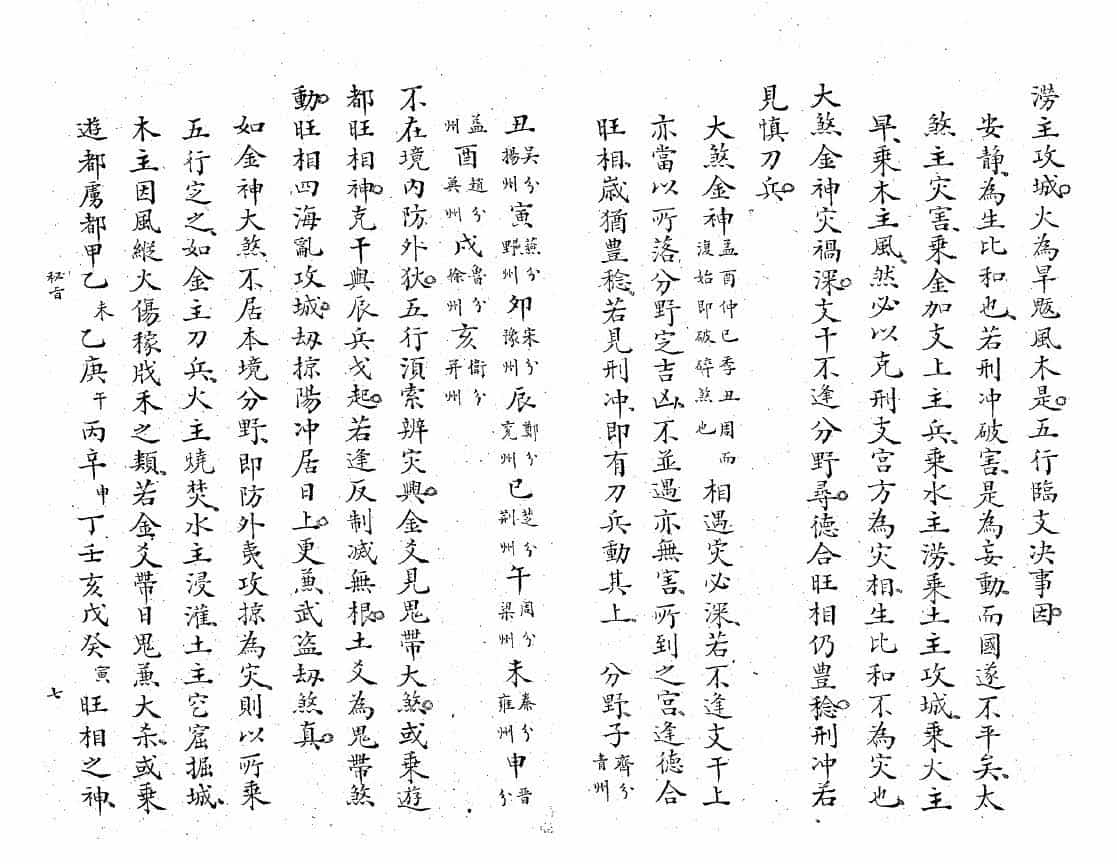 澇主攻城火為旱魃風木是五行臨支决事因
安静為生比和也若刑冲破害是為妄動而國遂不平矣太
煞主灾害乘金加支上主兵乘水主澇乘土主攻城乘火主
旱乘木主風然必以克刑支宫方為灾相生比和不為灾也
大煞金神灾禍深支干不逢分野尋德合旺相仍豊稔刑冲若
見慎刀兵
大煞金神孟酉仲巳季丑周而復始即破碎煞也相遇灾必深若不逢支干上
亦當以所落分野定吉凶不並遇亦無害所到之宫逢德合
旺相歲猶豊稔若見刑冲即有刀兵動其上 分野子齊分青州
丑吳分揚州寅燕分野州卯宋分豫州辰鄭分兖州巳楚分荆州午周分梁州未秦分雍州申晋分
益州酉趙分冀州戌魯分徐州亥衞分并州
不在境内防外狄五行須索辨灾興金爻見鬼帶大煞或乘遊
都旺相神克干與辰兵戈起若逢反制滅無根土爻為鬼帶煞
動旺相四海亂攻城刼掠陽冲居日上更蒹武盗刼煞真
如金神大煞不居本境分野即防外夷攻掠為灾則以所乘
五行定之如金主刀兵火主燒焚水主浸灌土主穴窟掘城
木主因風縱火傷稼戕禾之類若金爻帶日鬼蒹大杀或乘
遊都虜都甲乙未乙庚午丙辛申丁壬亥戊癸寅旺相之神
七